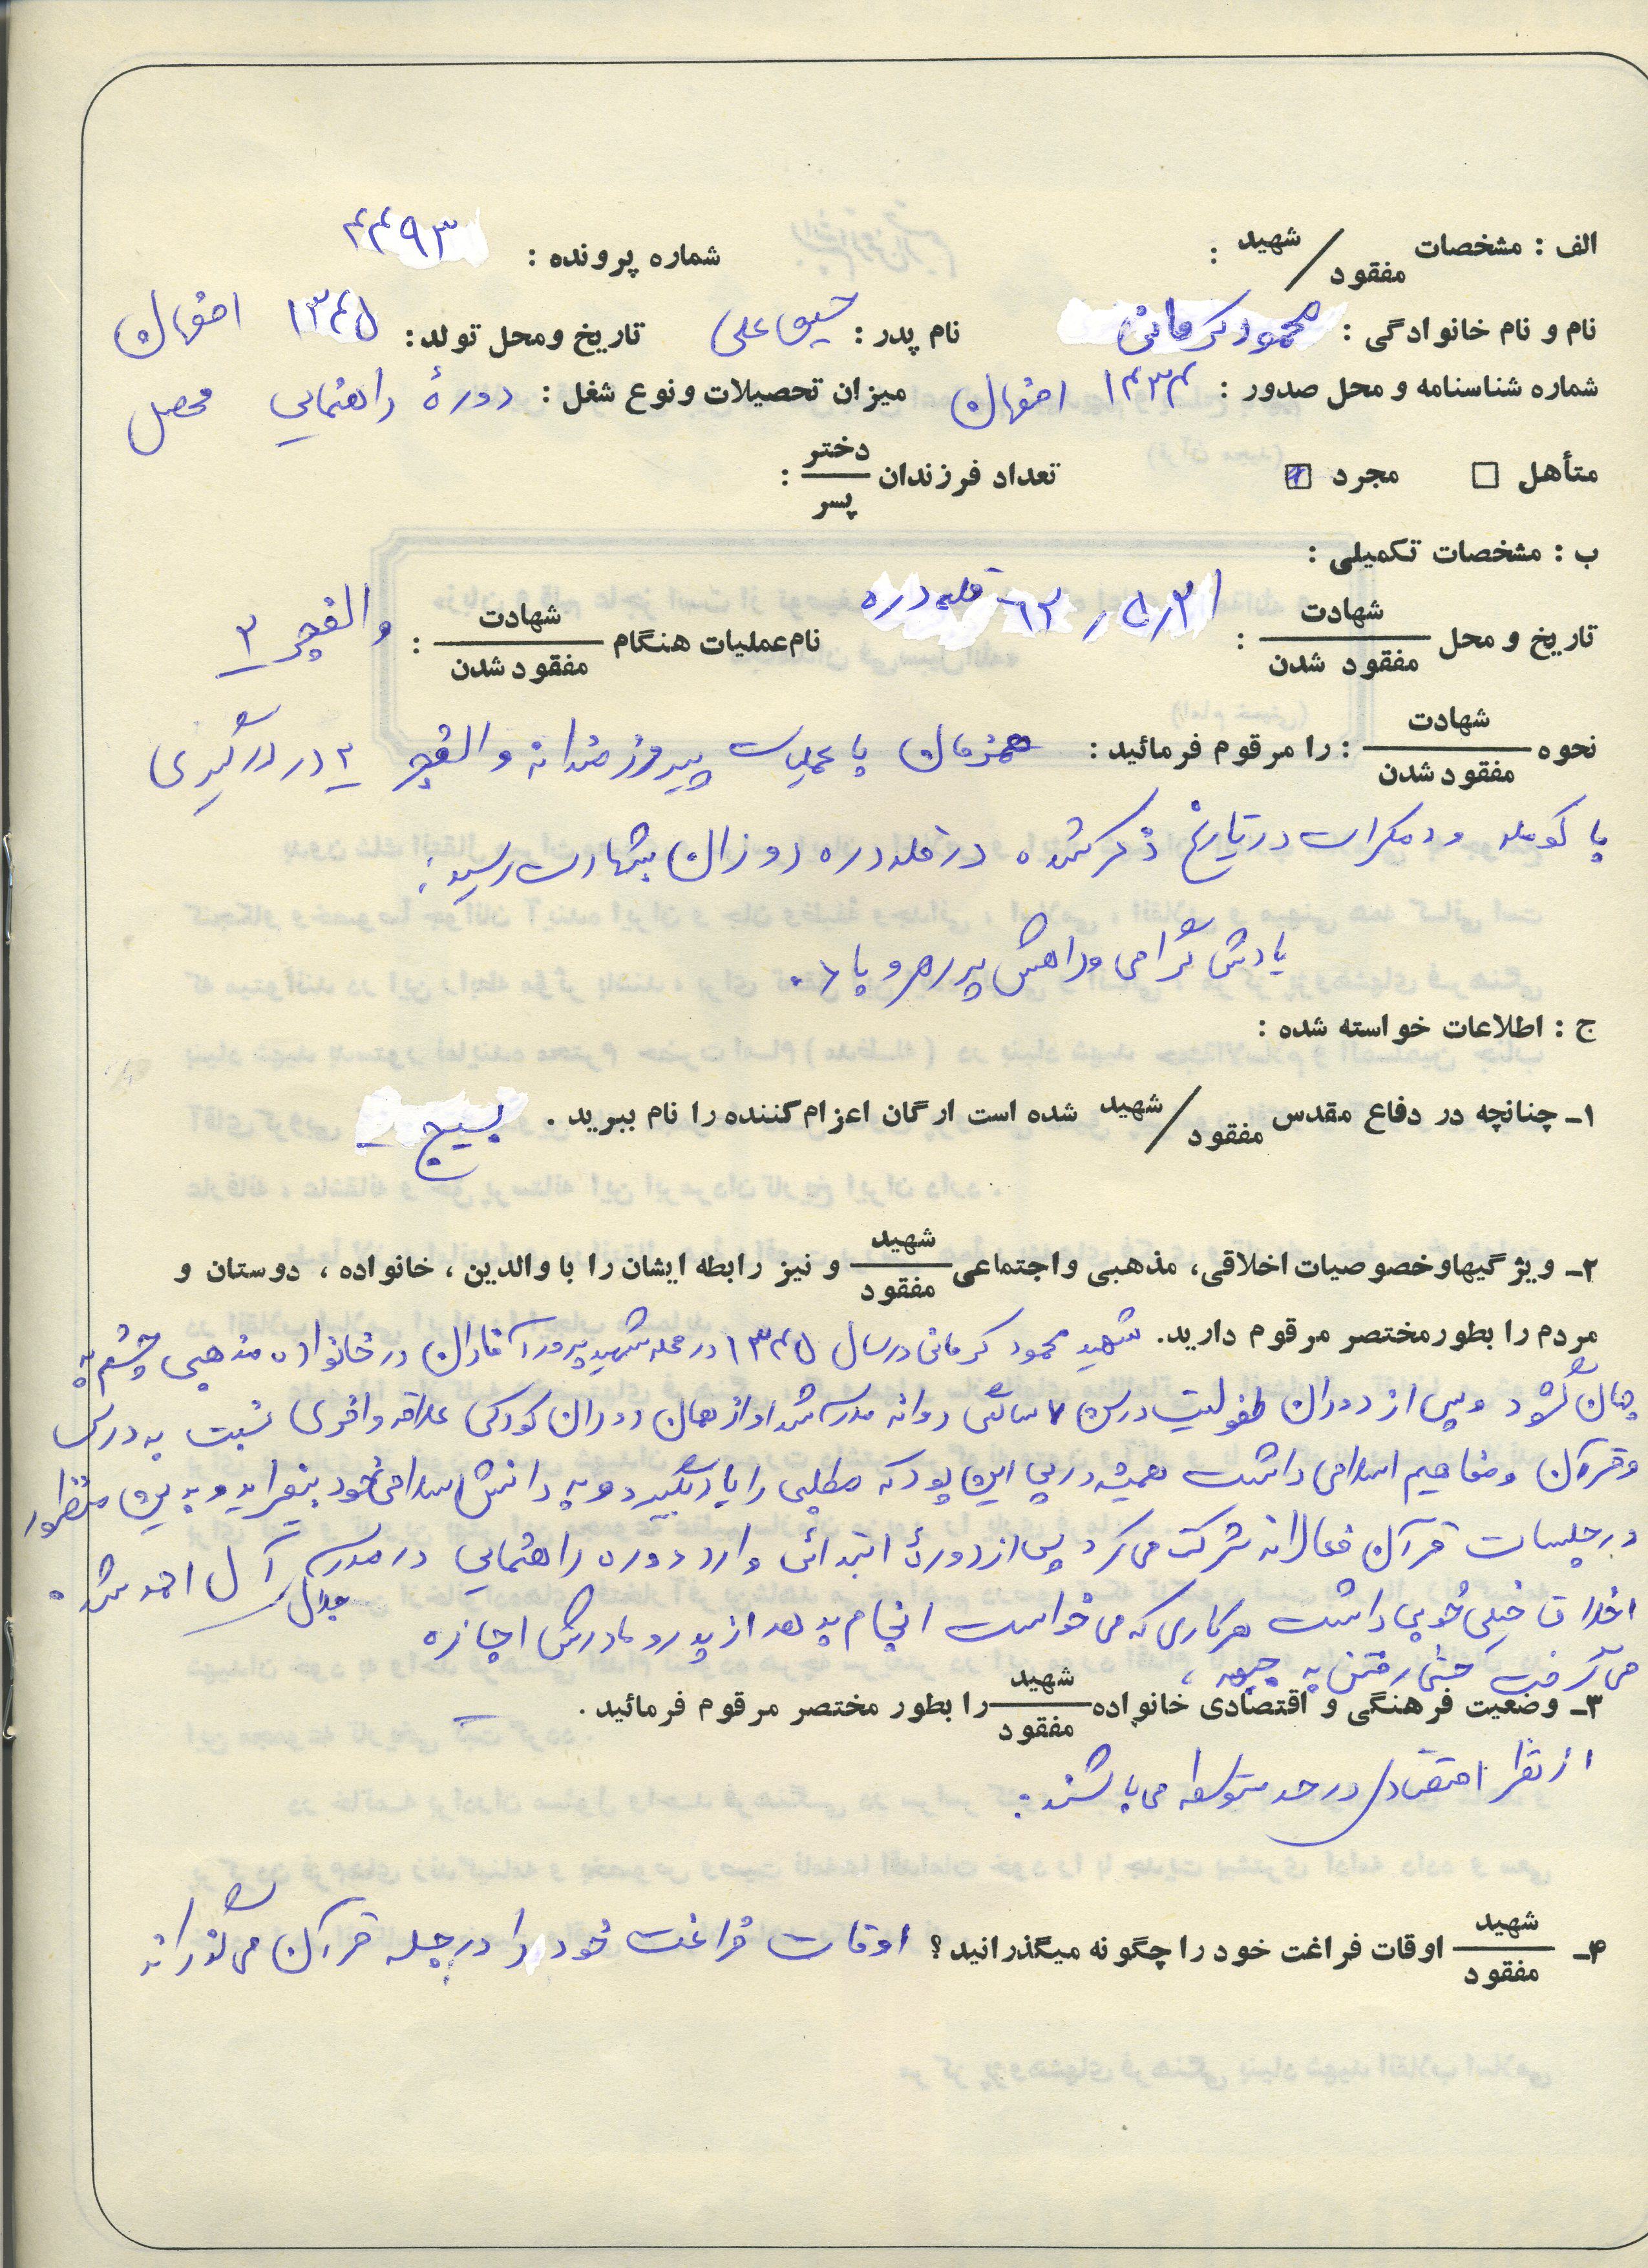 الف : مشخصات شهید / مفقود : شماره پرونده : ۴۴۹۳
نام و نام خانوادگی : محمود کرمانی نام پدر : حسین علی تاریخ و محل تولد : ۱۳۴۵ اصفهان
شماره شناسنامه و محل صدور : ۱۴۳۴ اصفهان میزان تحصیلات و نوع شغل : دورهٔ راهنمایی محصل
متأهل □ مجرد ☑ تعداد فرزندان دختر / پسر :
ب : مشخصات تکمیلی :
تاریخ و محل شهادت / مفقود شدن : ۶۲/۵/۳۱ قلعه دره نام عملیات هنگام شهادت / مفقود شدن : والفجر ۲
نحوه شهادت / مفقود شدن : را مرقوم فرمائید : همزمان با عملیات پیروزمندانه والفجر ۲ در درگیری
با کومله و دمکرات در تاریخ ذکر شده در قلعه دره دوزال بشهادت رسید .
یادش گرامی و راهش پر رهرو باد .
ج : اطلاعات خواسته شده :
۱ـ چنانچه در دفاع مقدس شهید / مفقود شده است ارگان اعزام کننده را نام ببرید . بسیج
۲ـ ویژگیها و خصوصیات اخلاقی، مذهبی و اجتماعی شهید / مفقود و نیز رابطه ایشان را با والدین ، خانواده ، دوستان و
مردم را بطور مختصر مرقوم دارید. شهید محمود کرمانی در سال ۱۳۴۵ در محله شهید پرور آفاران در خانواده مذهبی چشم به
جهان گشود و پس از دوران طفولیت در سن ۷ سالگی روانه مدرسه شد او از همان دوران کودکی علاقه وافری نسبت به درس
و قرآن و مفاهیم اسلامی داشت همیشه در پی این بود که مطلبی را یاد بگیرد و به دانش اسلامی خود بیفزاید و به این منظور
در جلسات قرآن فعالانه شرکت می کرد پس از دورهٔ ابتدائی وارد دوره راهنمایی در مدرسه جلال آل احمد شد .
اخلاق خیلی خوبی داشت هر کاری که می خواست انجام بدهد از پدر و مادرش اجازه
می گرفت حتی رفتن به جبهه ،
۳ـ وضعیت فرهنگی و اقتصادی خانواده شهید / مفقود را بطور مختصر مرقوم فرمائید .
از نظر اقتصادی در حد متوسط می باشند .
۴ـ شهید / مفقود اوقات فراغت خود را چگونه میگذرانید ؟ اوقات فراغت خود را در جلسه قرآن می گذرانه